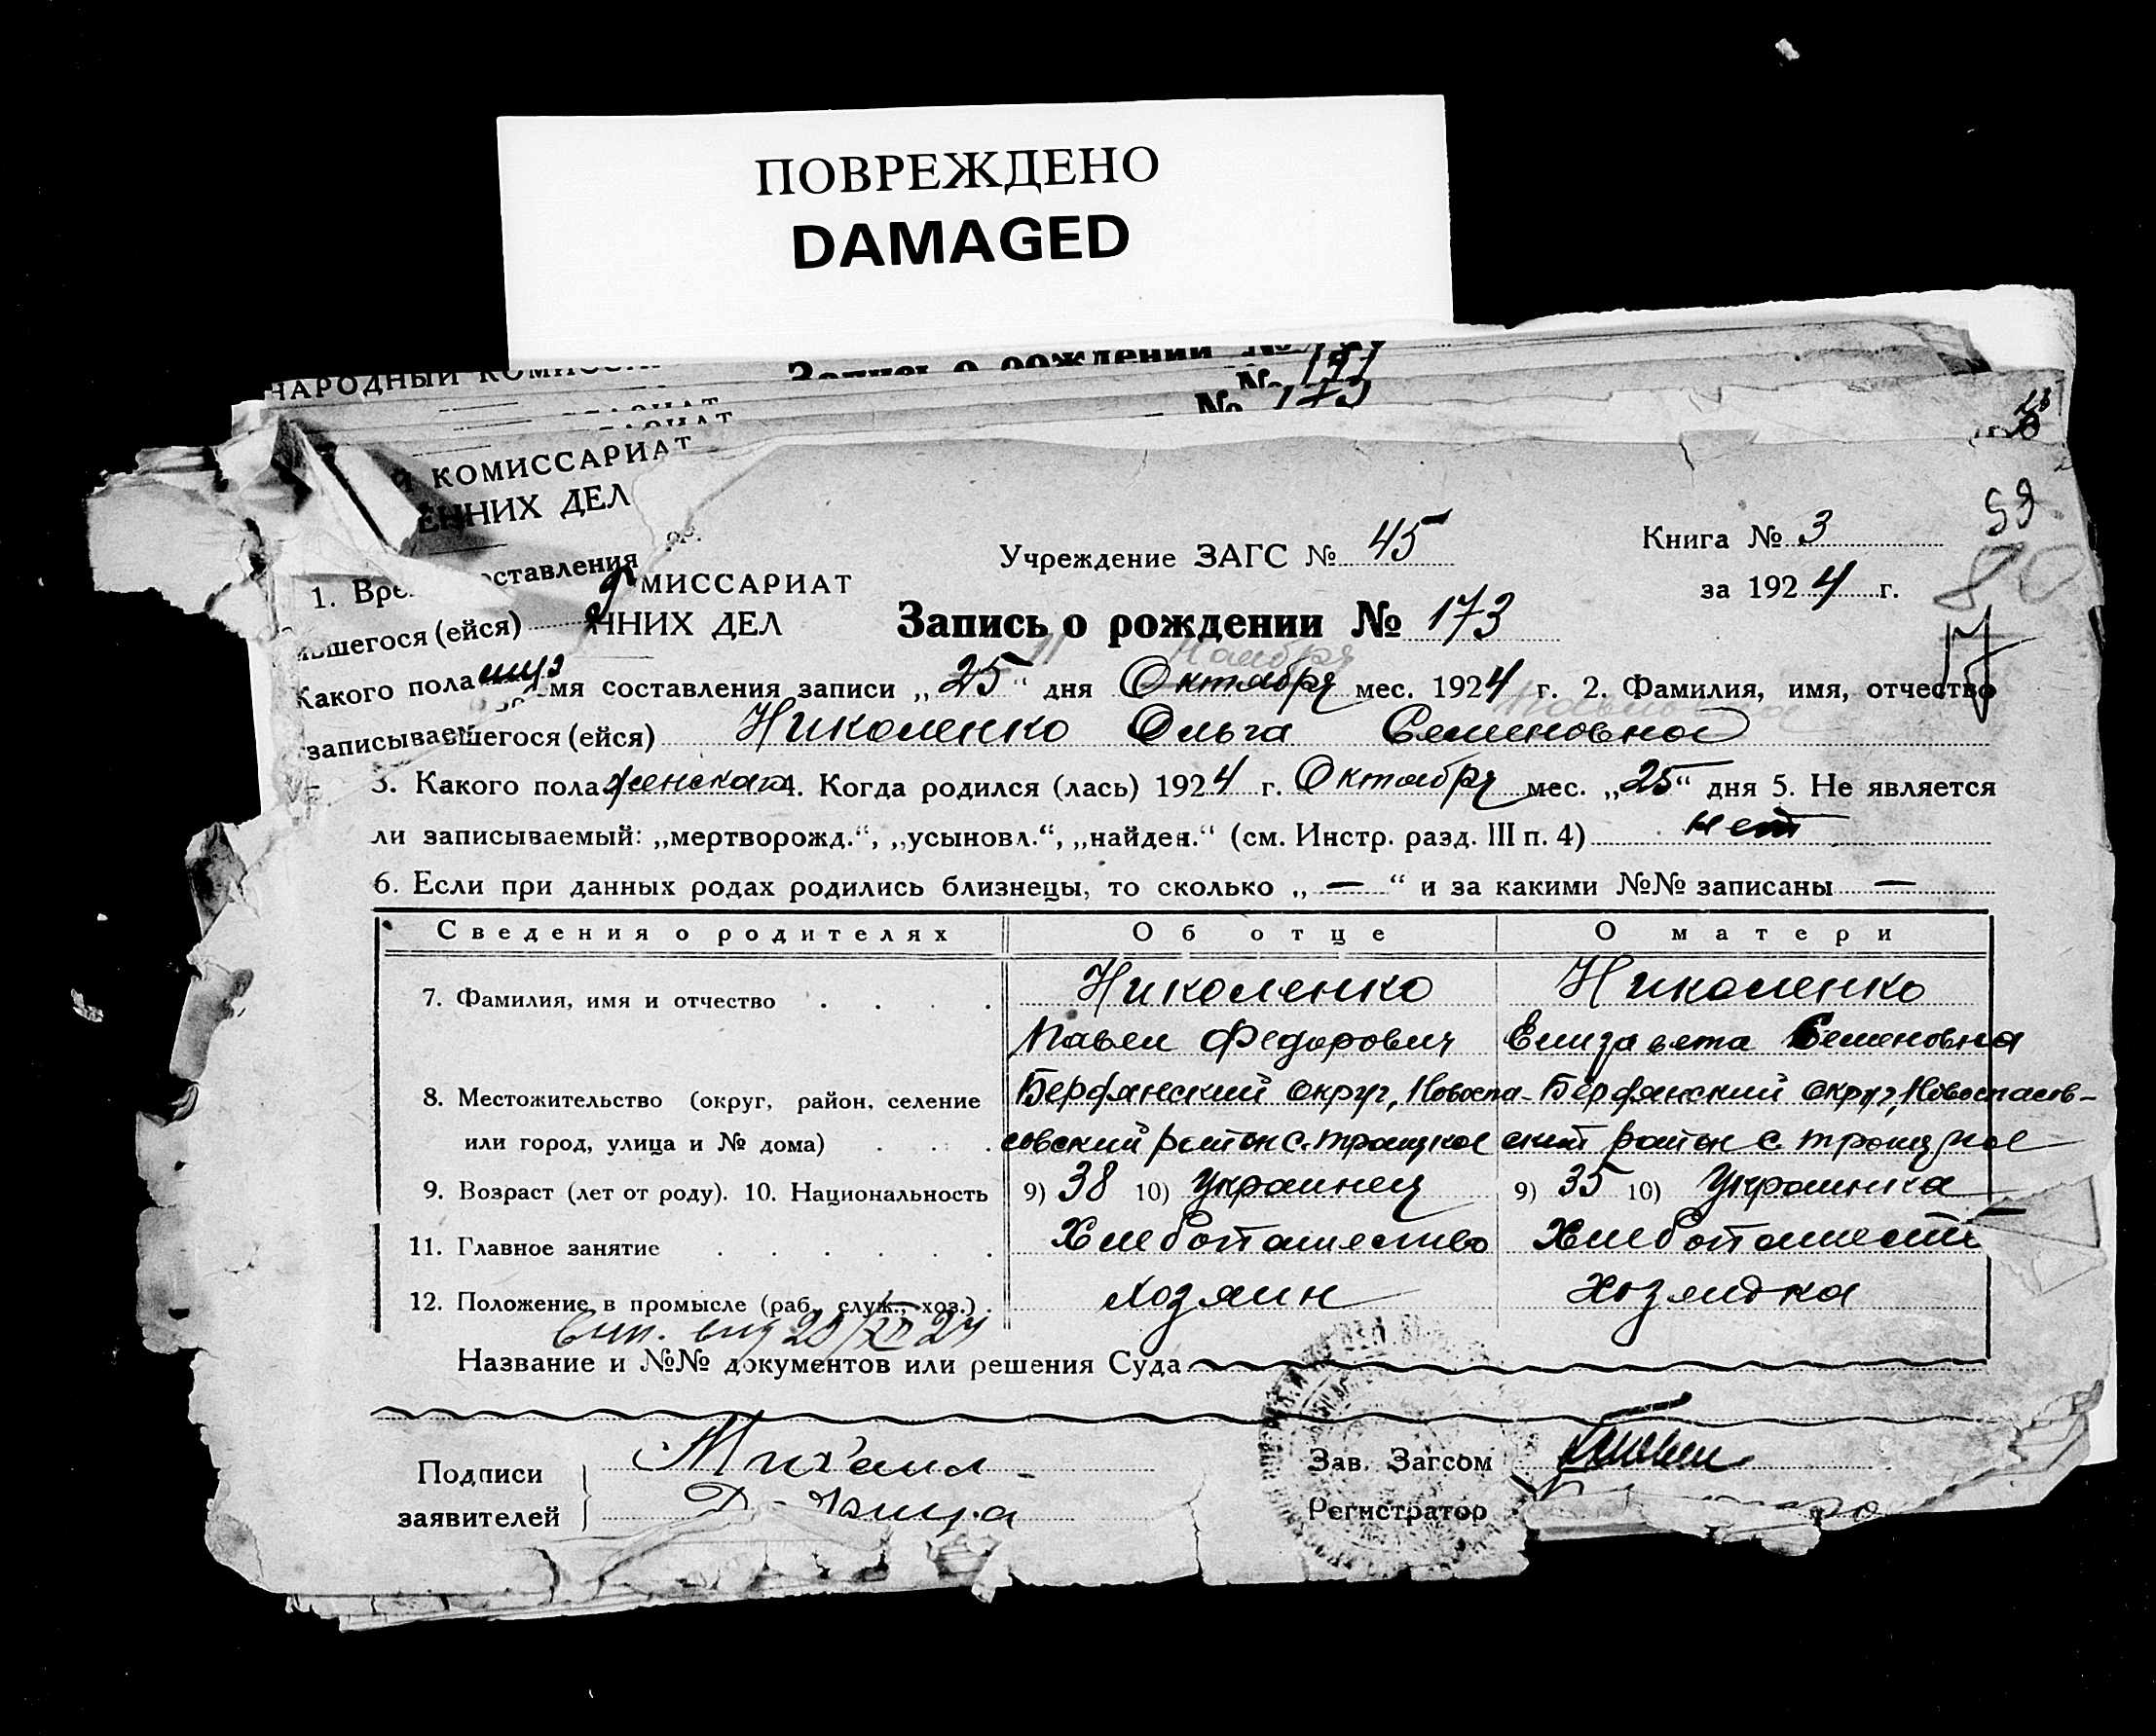 ПОВРЕЖДЕНО
DAMAGED
НАРОДНЫЙ
Запись о рождении №
№ 191
№ 173
КОМИССАРИАТ
ЕННИХ ДЕЛ
53
Учреждение ЗАГС № 45
Книга № 3
80
1. Вре
оставления
МИССАРИАТ
за 1924 г.
вшегося (ейся)
ННИХ ДЕЛ
Запись о рождении № 173
17
11 Ноября
Какого пола
мя составления записи „25“ дня Октября мес. 1924 г. 2. Фамилия, имя, отчество
Павловна
записывае
шегося (ейся) Николенко Ольга Семеновной
3. Какого пола женская 4. Когда родился (лась) 1924 г. Октябрь мес. „25“ дня 5. Не является
ли записываемый: „мертворожд.“, „усыновл.“, „найден.“ (см. Инстр. разд. III п. 4) нет
6. Если при данных родах родились близнецы, то сколько „—“ и за какими №№ записаны —
Сведения о родителях Об отце О матери
7. Фамилия, имя и отчество . . . . Николенко Николенко
Павел Федорович Елизавета Семеновна
8. Местожительство (округ, район, селение Бердянский округ, Новоспа- Бердянский округ, Новоспасов-
или город, улица и № дома) . . . совский район с. Троицкое ский район с. Троицкое
9. Возраст (лет от роду). 10. Национальность 9) 38 10) Украинец 9) 35 10) Украинка
11. Главное занятие . . . . . . Хлебопашество Хлебопашест
12. Положение в промысле (раб., служ., хоз.) . Хозяин Хозяйка
Название и №№ документов или решения Суда
Подписи
заявителей
Михаил
Зав. Загсом
Регистратор